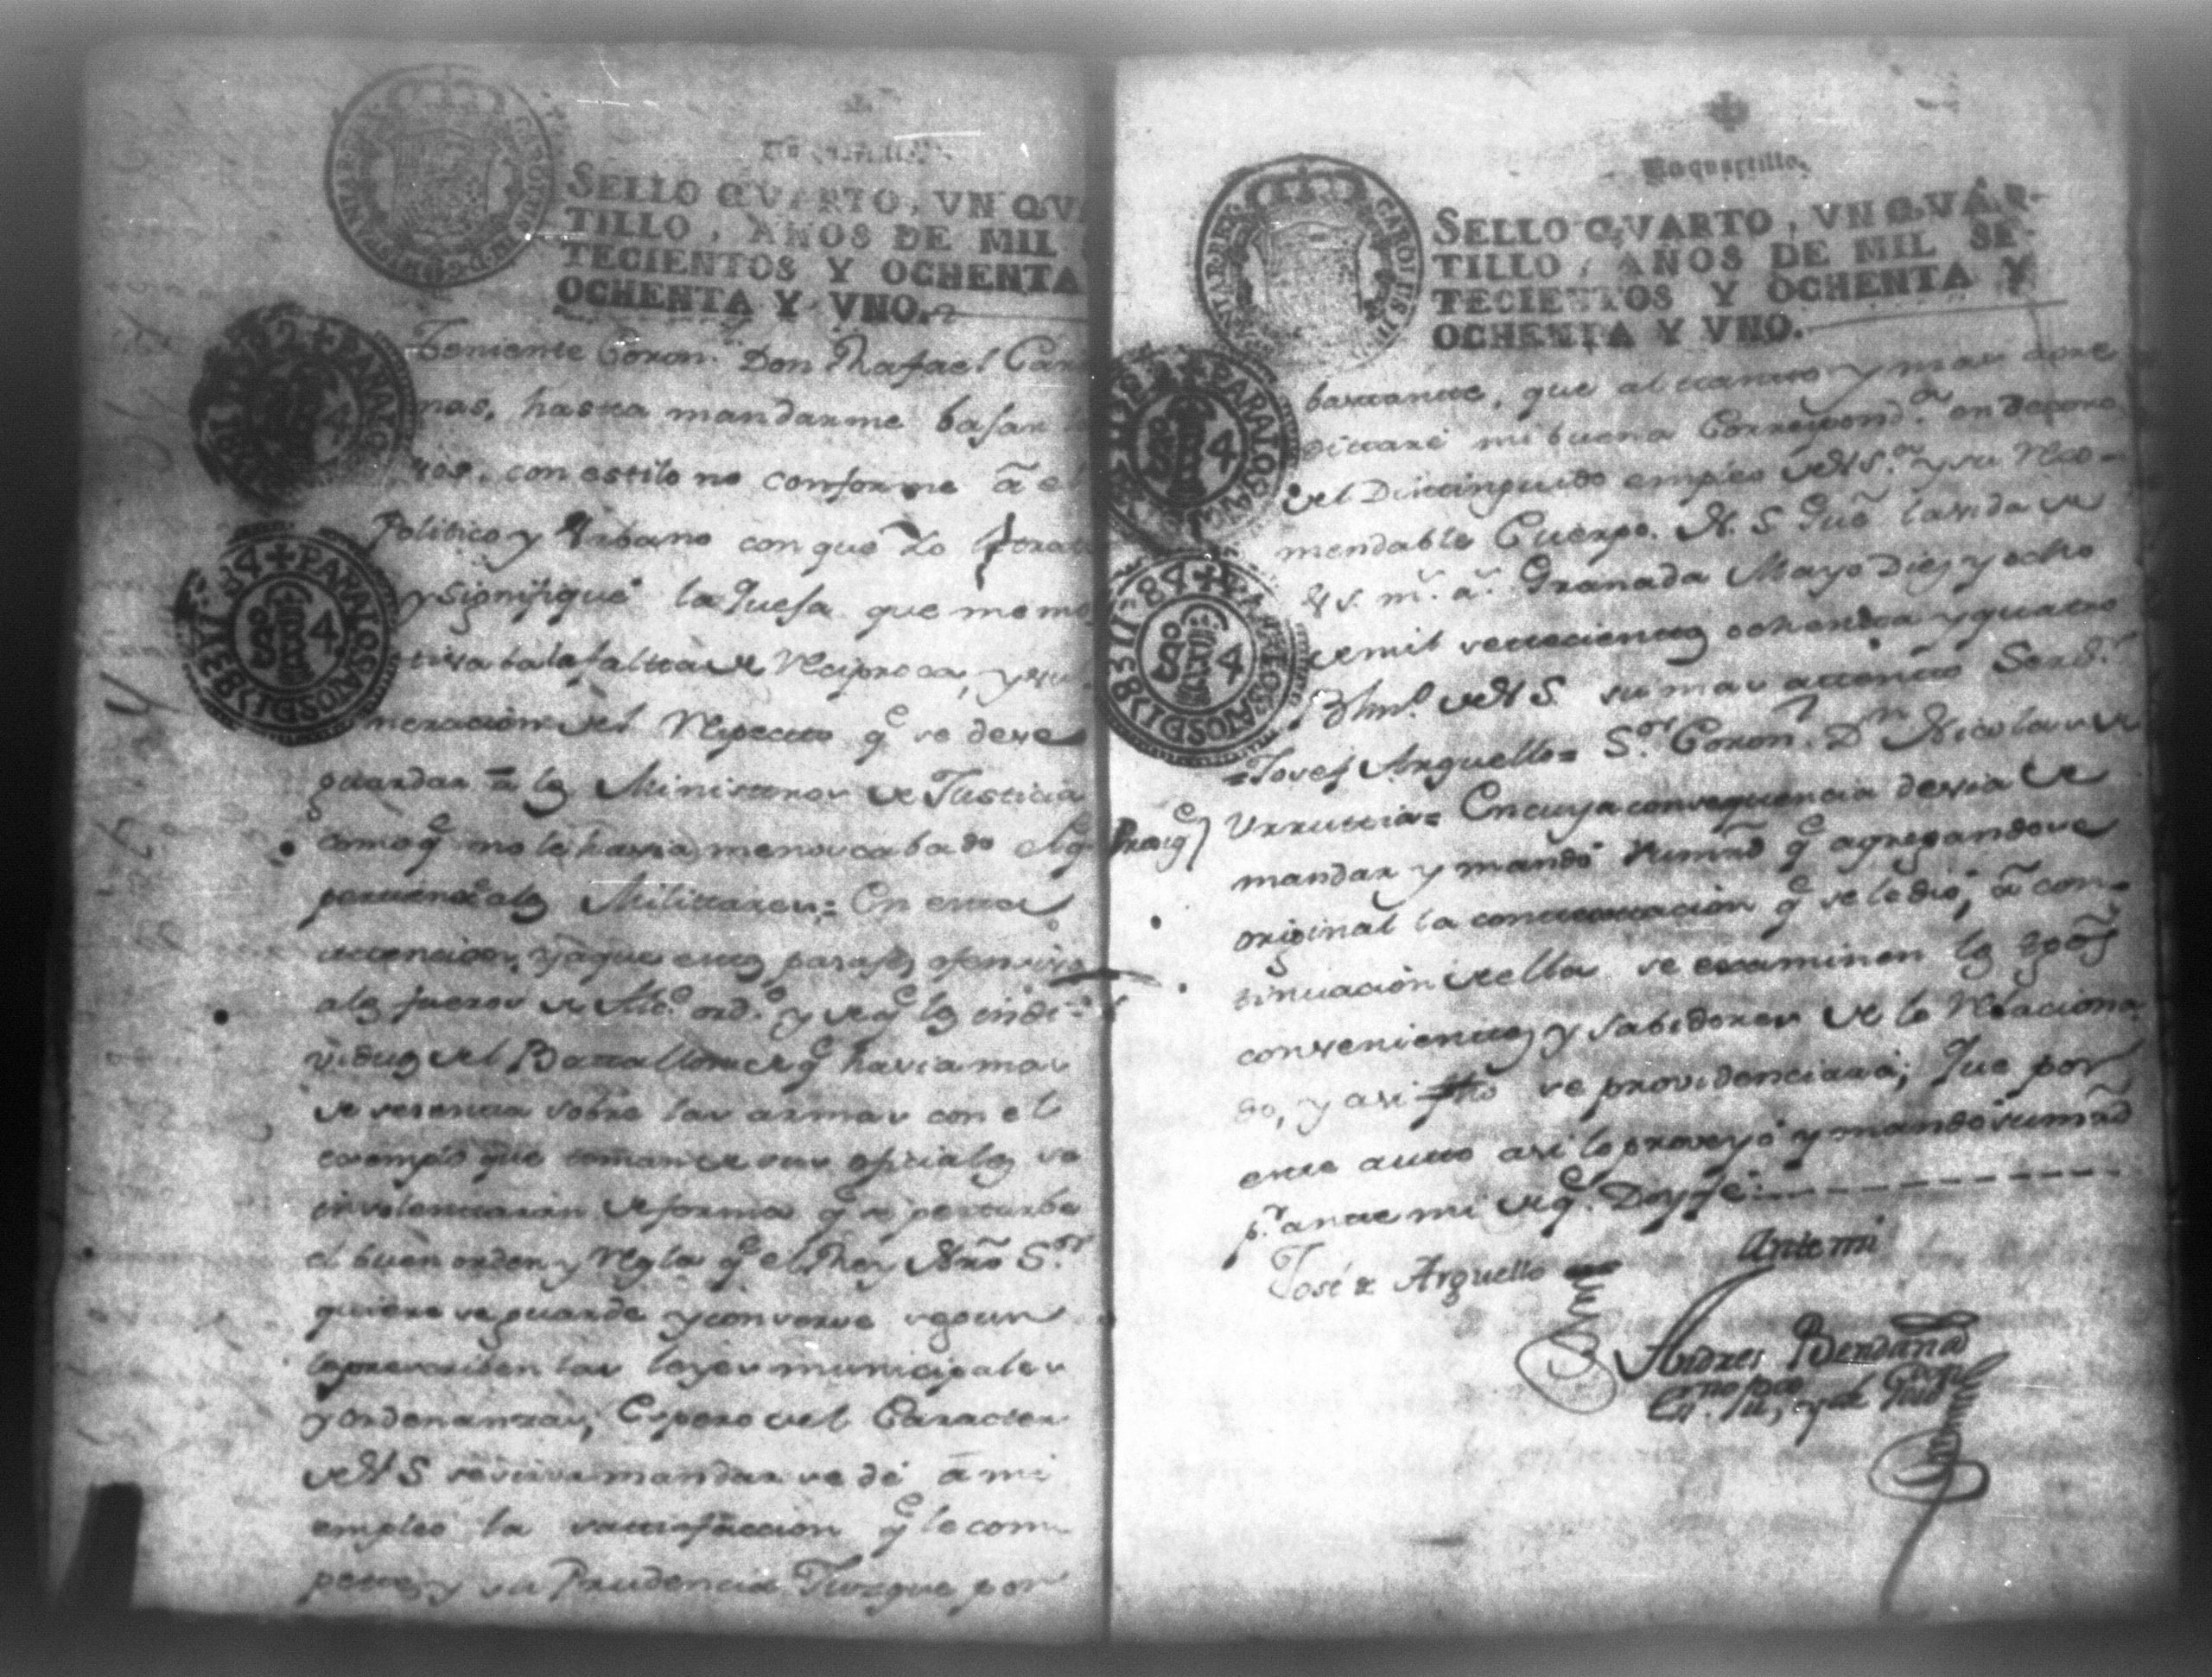 Un quartillo.
SELLO QVARTO, VN QVA
TILLO, AÑOS DE MIL
TECIENTOS Y OCHENTA
OCHENTA Y VNO.
Teniente Coron.l Don Rafael Car
nas, hasta mandarme bajar
con estilo no conforme â el
Politico y Urbano con que lo
y signifiqué la quefa que me mo
tivaba la falta de Reciproca, y
neracion del Respecto q.e se deve
guardar â los Ministros de Justicia
como q.e no le havia menoscabado
a los Militares = En esta
attencion, y a que estos pasajes
a los fueros de ord.a y de q.e los indi-
viduos del Batallon de q.e havia mas
de sesenta sobre las armas con el
exemplo que toman de sus oficiales se
insolentaran de forma q.e se perturbe
el buen orden y Regla q.e el Rey Nro S.or
quiere se guarde y conserve segun
lo prescriben las leyes municipales
y ordenanzas, Espero del Caracter
de V S se sirva mandar se dé â mi
empleo la sattisfaccion q.e le com
pette, y su Prudencia Juzgue por
Un quartillo.
SELLO QVARTO, VN QVAR-
TILLO, AÑOS DE MIL SE-
TECIENTOS Y OCHENTA Y
OCHENTA Y VNO.
bastante, que al tanto y mas acre
dittaré mi buena Correspond.a en decoro
del Distinguido empleo de V S.a y su Reco-
mendable Cuerpo. N. S. Gué la vida de
V s. m.s a.s Granada Mayo Diez y ocho
de mil settecientos ochenta y quatro
B l m.o de V S. su mas attento Serv.r
= Josef Arguello = S.or Coron.l D.n Nicolas de
Urruttia = En cuya consequencia devia de
mandar y mandó sumrd q.e agregandose
original la conttestacion q.e se le dió, â con-
tinuacion de ella se examinen los
convenientes y sabidores de lo Relaciona
do, y asi fho se providenciara; Que por
este autto asi lo proveyó y mandó sumrd
p.r ante mi de q.e Doy fé
José de Arguello
Ante mi
Andres Bendaña